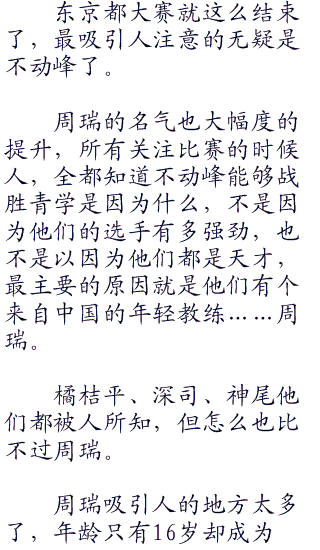 东京都大赛就这么结束
了，最吸引人注意的无疑是
不动峰了。
周瑞的名气也大幅度的
提升，所有关注比赛的时候
人，全都知道不动峰能够战
胜青学是因为什么，不是因
为他们的选手有多强劲，也
不是以因为他们都是天才，
最主要的原因就是他们有个
来自中国的年轻教练……周
瑞。
橘桔平、深司、神尾他
们都被人所知，但怎么也比
不过周瑞。
周瑞吸引人的地方太多
了，年龄只有16岁却成为